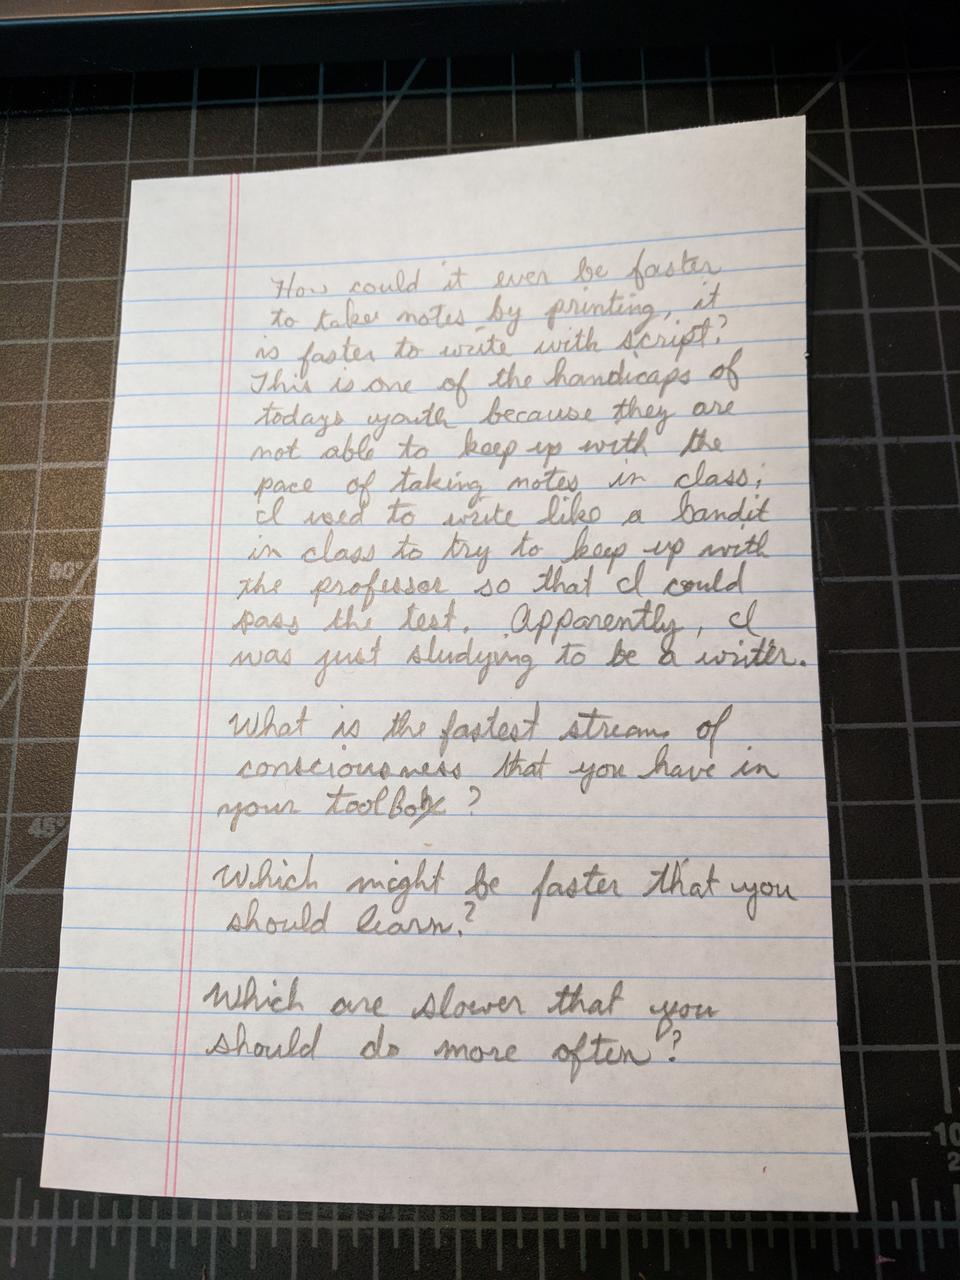 How could it ever be faster
to take notes by printing, it
is faster to write with script?
This is one of the handicaps of
todays youth because they are
not able to keep up with the
pace of taking notes in class;
I used to write like a bandit
in class to try to keep up with
the professor so that I could
pass the test. Apparently, I
was just studying to be a writer.
What is the fastest stream of
consciousness that you have in
your toolbox?
Which might be faster that you
should learn?
Which are slower that you
should do more often?
90°
45°
10
2